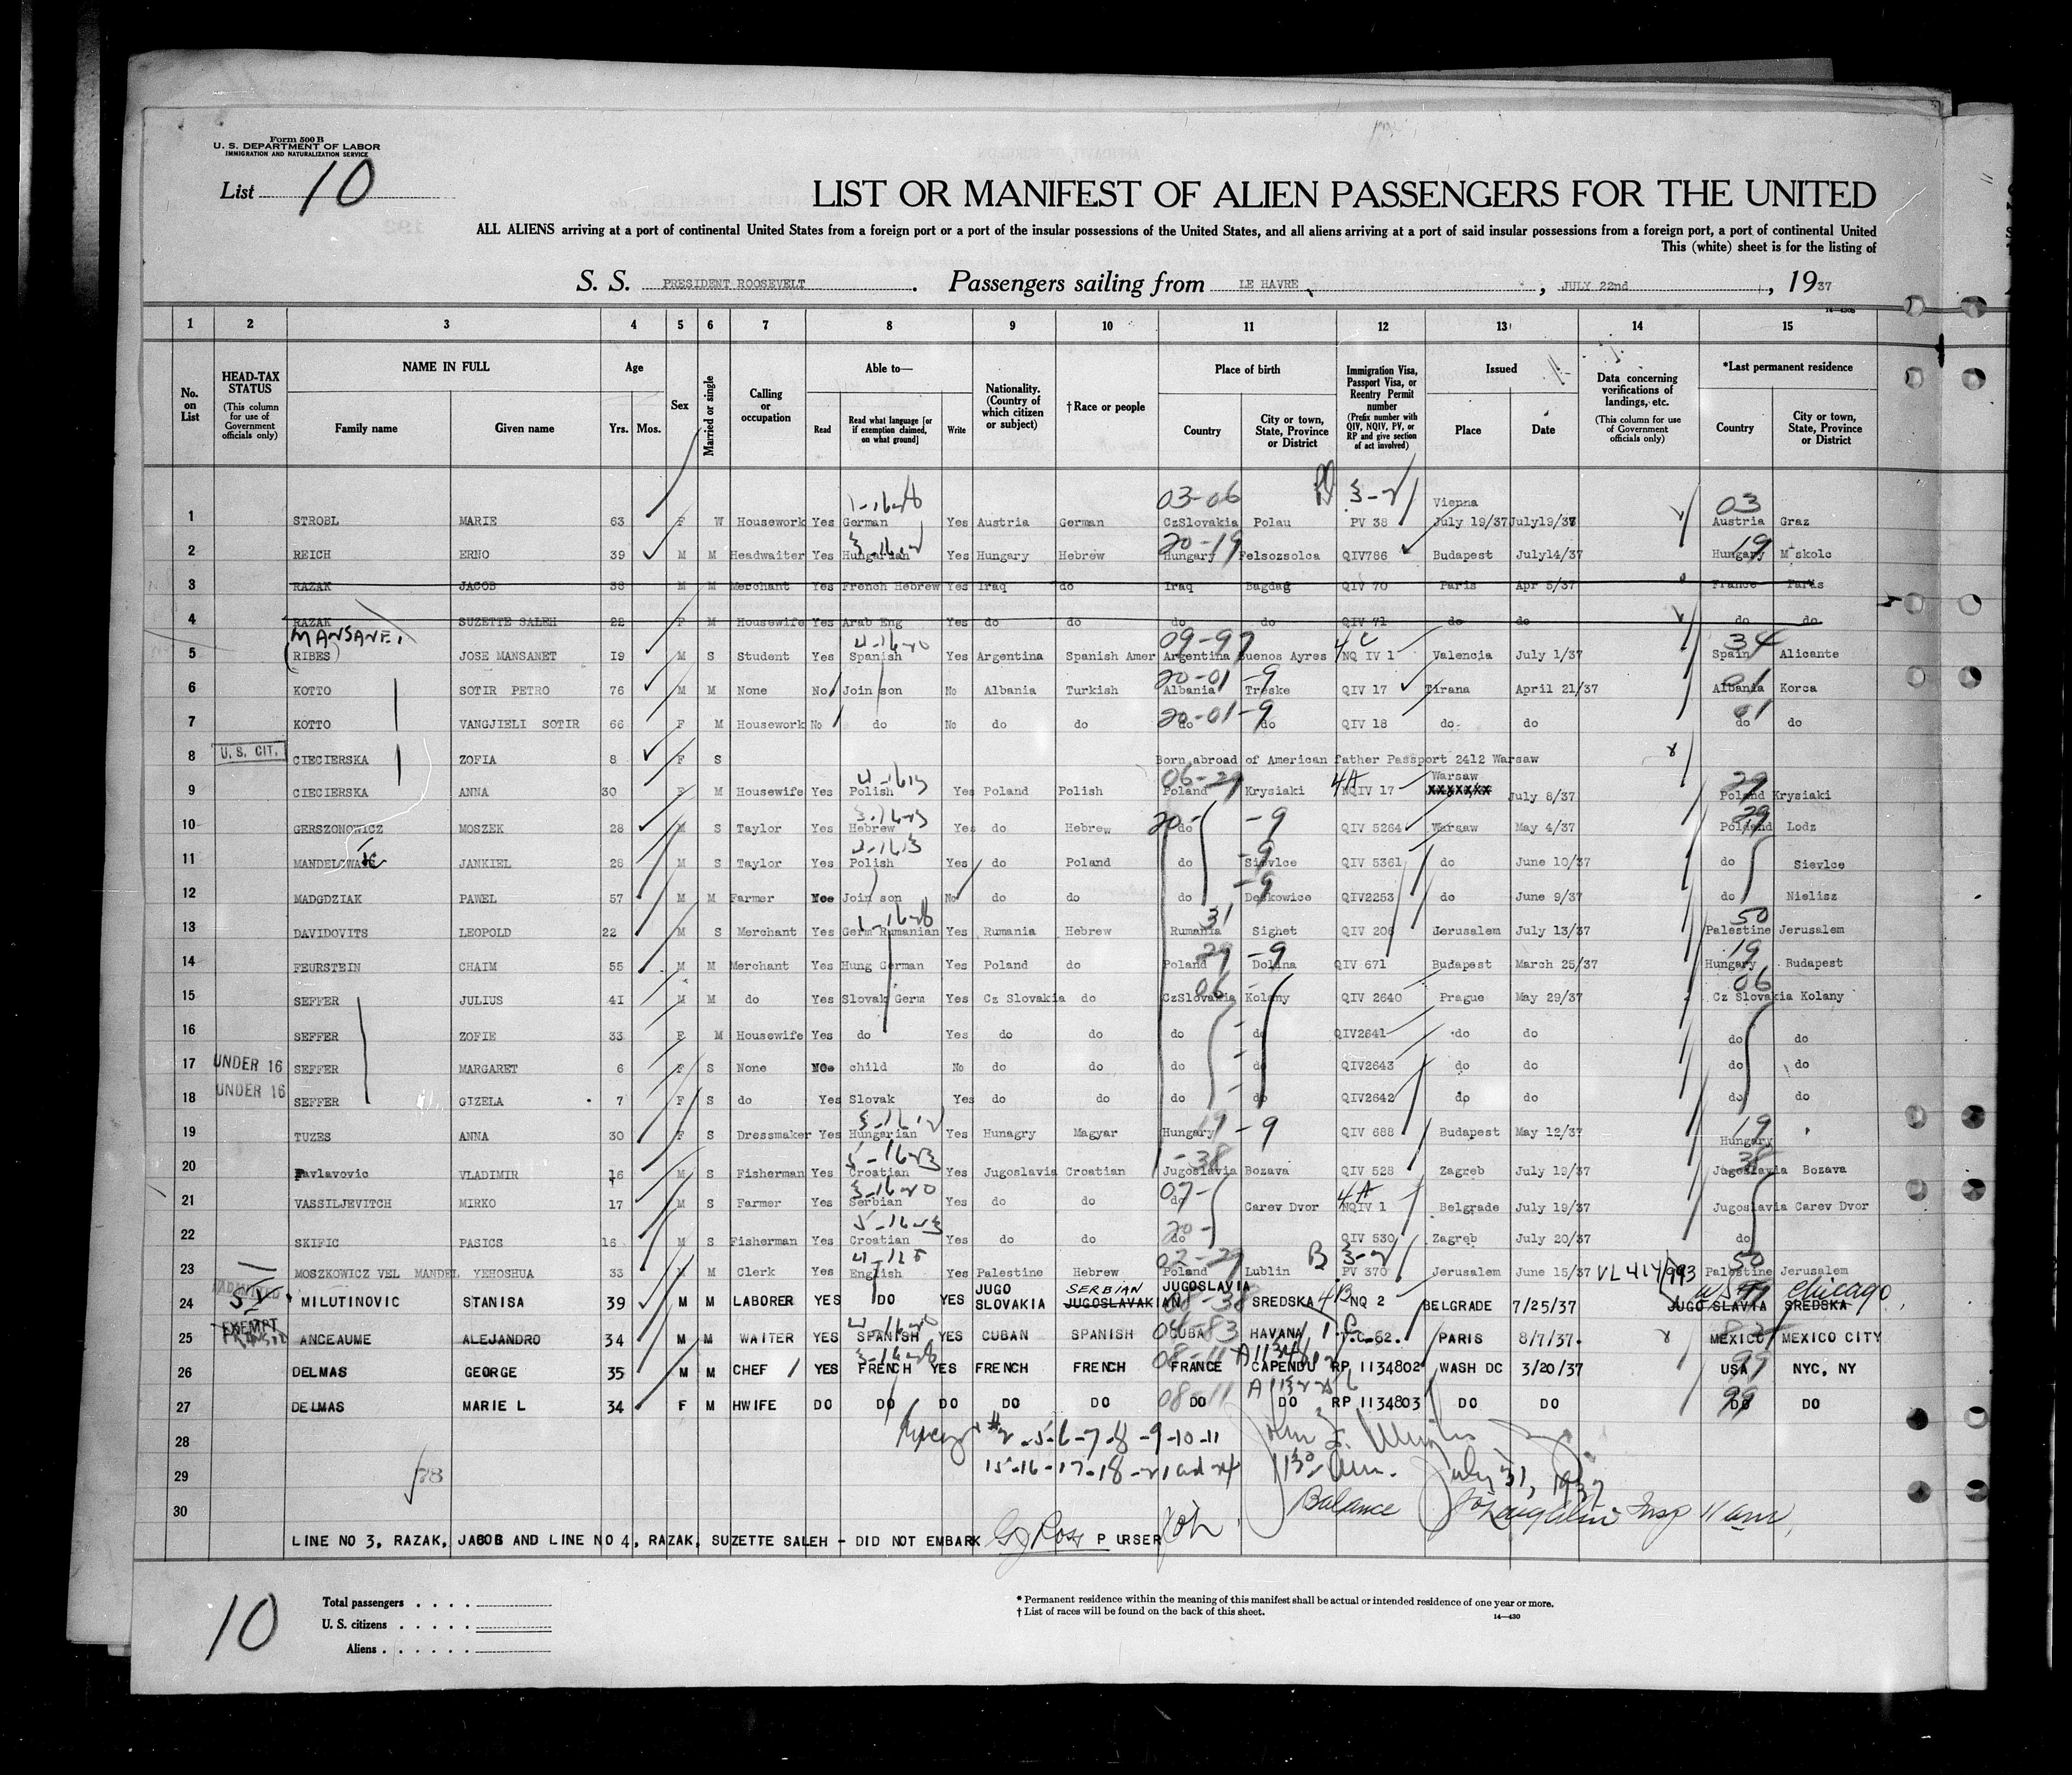 Form 500 B
U. S. DEPARTMENT OF LABOR
IMMIGRATION AND NATURALIZATION SERVICE
List 10
LIST OR MANIFEST OF ALIEN PASSENGERS FOR THE UNITED
ALL ALIENS arriving at a port of continental United States from a foreign port or a port of the insular possessions of the United States, and all aliens arriving at a port of said insular possessions from a foreign port, a port of continental United
This (white) sheet is for the listing of
S. S. PRESIDENT ROOSEVELT. Passengers sailing from LE HAVRE, JULY 22nd, 1937
14—430b
1 2 3 4 5 6 7 8 9 10 11 12 13 14 15
No. on List
HEAD-TAX STATUS (This column for use of Government officials only)
NAME IN FULL Family name Given name
Age Yrs. Mos.
Sex
Married or single
Calling or occupation
Able to— Read Read what language [or if exemption claimed, on what ground] Write
Nationality. (Country of which citizen or subject)
†Race or people
Place of birth Country City or town, State, Province or District
Immigration Visa, Passport Visa, or Reentry Permit number (Prefix number with QIV, NQIV, PV, or RP and give section of act involved)
Issued Place Date
Data concerning verifications of landings, etc. (This column for use of Government officials only)
*Last permanent residence Country City or town, State, Province or District
03-06 03
Vienna
1 STROBL MARIE 63 F W Housework Yes German Yes Austria German CzSlovakia Polau PV 38 July 19/37 July19/37 Austria Graz
20-19 19
2 REICH ERNO 39 M M Headwaiter Yes Hungarian Yes Hungary Hebrew Hungary Felsozsolca QIV786 Budapest July14/37 Hungary M skolc
3 RAZAK JACOB 38 M M Merchant Yes French Hebrew Yes Iraq do Iraq Bagdag QIV 70 Paris Apr 5/37 France Paris
4 RAZAK SUZETTE SALEH 22 F M Housewife Yes Arab Eng Yes do do do do QIV 71 do do do do
MANSANET 09-97 4C 34
5 (RIBES) JOSE MANSANET 19 M S Student Yes Spanish Yes Argentina Spanish Amer Argentina Buenos Ayres NQ IV 1 Valencia July 1/37 Spain Alicante
20-01 -9 01
6 KOTTO SOTIR PETRO 76 M M None No Join son No Albania Turkish Albania Treske QIV 17 Tirana April 21/37 Albania Korca
20-01-9 01
7 KOTTO VANGJIELI SOTIR 66 F M Housework No do No do do do do QIV 18 do do do do
8 U. S. CIT. CIECIERSKA ZOFIA 8 F S Born abroad of American father Passport 2412 Warsaw
06-29 4A Warsaw 29
9 CIECIERSKA ANNA 30 F M Housewife Yes Polish Yes Poland Polish Poland Krysiaki NQIV 17 XXXXXXX July 8/37 Poland Krysiaki
20- -9 29
10 GERSZONOWICZ MOSZEK 28 M S Taylor Yes Hebrew Yes do Hebrew do QIV 5264 Warsaw May 4/37 Poland Lodz
-9
11 JANKIEL 28 M S Taylor Yes Polish Yes do Poland do Sievlce QIV 5361 do June 10/37 do Sievlce
-9
12 MADGDZIAK PAWEL 57 M M Farmer Join son No do do do Deskowice QIV2253 do June 9/37 do Nielisz
31 50
13 DAVIDOVITS LEOPOLD 22 M S Merchant Yes Germ Rumanian Yes Rumania Hebrew Rumania Sighet QIV 206 Jerusalem July 13/37 Palestine Jerusalem
29 -9 19
14 FEURSTEIN CHAIM 55 M M Merchant Yes Hung German Yes Poland do Poland Dolina QIV 671 Budapest March 25/37 Hungary Budapest
06 06
15 SEFFER JULIUS 41 M M do Yes Slovak Germ Yes Cz Slovakia do CzSlovakia Kolany QIV 2640 Prague May 29/37 Cz Slovakia Kolany
16 SEFFER ZOFIE 33 F M Housewife Yes do Yes do do do do QIV2641 do do do do
17 UNDER 16 SEFFER MARGARET 6 F S None child No do do do do QIV2643 do do do do
18 UNDER 16 SEFFER GIZELA 7 F S do Yes Slovak Yes do do do do QIV2642 do do do do
19 -9 19
19 TUZES ANNA 30 F S Dressmaker Yes Hungarian Yes Hunagry Magyar Hungary QIV 688 Budapest May 12/37 Hungary
-38 38
20 Pavlavovic VLADIMIR 16 M S Fisherman Yes Croatian Yes Jugoslavia Croatian Jugoslavia Bozava QIV 528 Zagreb July 18/37 Jugoslavia Bozava
07- 4A
21 VASSILJEVITCH MIRKO 17 M S Farmer Yes Serbian Yes do do do Carev Dvor NQIV 1 Belgrade July 19/37 Jugoslavia Carev Dvor
20-
22 SKIFIC PASICS 16 M S Fisherman Yes Croatian Yes do do do QIV 530 Zagreb July 20/37 do
02-29 B 3-2 50
23 MOSZKOWICZ VEL MANDEL YEHOSHUA 33 M M Clerk Yes English Yes Palestine Hebrew Poland Lublin PV 370 Jerusalem June 15/37 VL 414/993 Palestine Jerusalem
JUGO SERBIAN JUGOSLAVIA 08-38 4B 99 Chicago
24 MILUTINOVIC STANISA 39 M M LABORER YES DO YES SLOVAKIA JUGOSLAVAKIAN SREDSKA NQ 2 BELGRADE 7/25/37 JUGO SLAVIA SREDSKA
04-83
25 EXEMPT ANCEAUME ALEJANDRO 34 M M WAITER YES SPANISH YES CUBAN SPANISH CUBA HAVANA T.C-62. PARIS 8/7/37. MEXICO MEXICO CITY
08-11 99
26 DELMAS GEORGE 35 M M CHEF YES FRENCH YES FRENCH FRENCH FRANCE CAPENDU RP 1134802 WASH DC 3/20/37 USA NYC, NY
08-11 99
27 DELMAS MARIE L 34 F M HWIFE DO DO DO DO DO DO DO RP 1134803 DO DO DO DO
28 #2-5-6-7-8-9-10-11
29 78 15-16-17-18-21 and 24 1130 am. July 31, 1937
30 Balance Insp 11 am
LINE NO 3, RAZAK, JACOB AND LINE NO 4, RAZAK, SUZETTE SALEH - DID NOT EMBARK PURSER
10
Total passengers
U. S. citizens
Aliens
* Permanent residence within the meaning of this manifest shall be actual or intended residence of one year or more.
† List of races will be found on the back of this sheet.
14—430